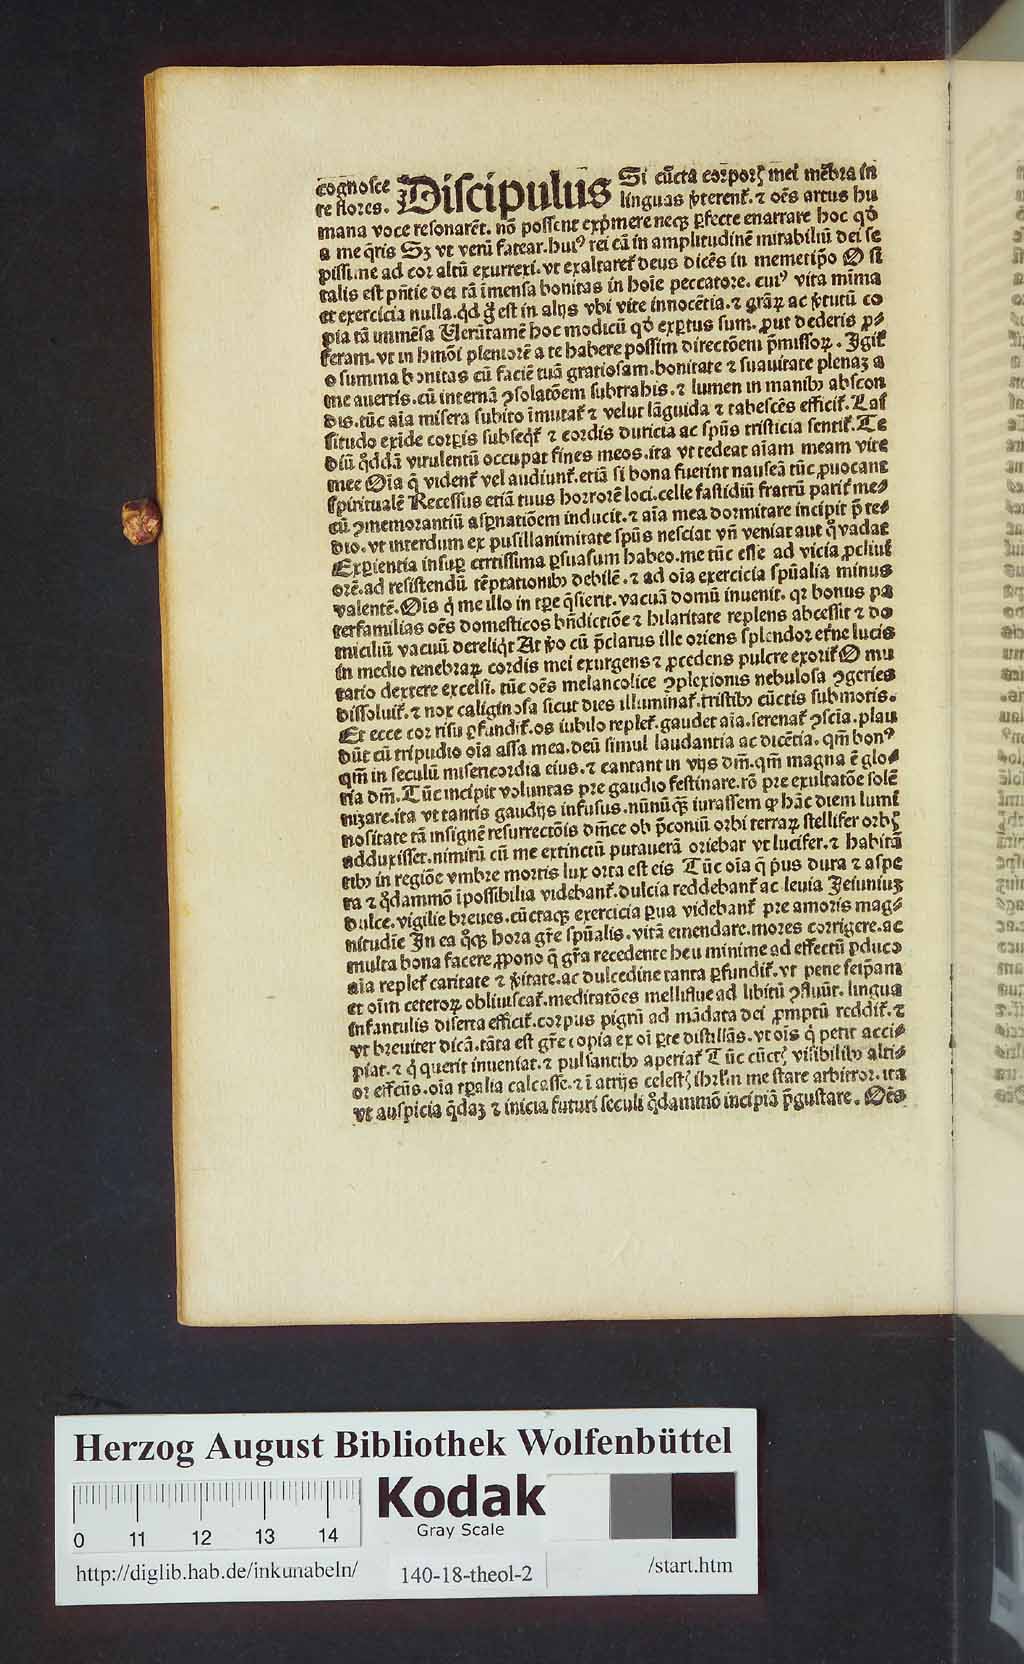 cognosce Discipulus Si cūcta corporꝭ mei mēbra in
re flores. linguas v̓terent᷑. ⁊ oēs artus hu
mana voce resonarēt. nō possent exp̓mere neqꝫ ꝑfecte enarrare hoc qđ
a me q̄ris Sꝫ vt verū fatear. huiꝰ rei cā in amplitudinē mirabiliū dei se
pissime ad cor altū exurrexi. vt exaltaret᷑ deus dicēs in memetip̄o O si
talis est pn̄tie dei tā īmensa bonitas in hoīe peccatore. cuiꝰ vita mīma
et exercicia nulla. qd g̊ est in alijs vbi vite innocētia. ⁊ graꝝ ac v̓tutū co
pia tā immēsa Uerūtamē hoc modicū qđ exꝑtus sum. ꝓut dederis ꝓ-
feram. vt in hmōi pleniorē a te habere possim directōem p̄missoꝝ. Igit᷑
o summa bonitas cū faciē tuā gratiosam. bonitate ⁊ suauitate plenaꝫ a
me auertis. cū internā ꝯsolatōem subtrahis. ⁊ lumen in manibꝫ abscon
dis. tūc aīa misera subito īmutat᷑ ⁊ velut lāguida ⁊ tabescēs efficit᷑. Las
situdo exīde corꝑis subseqt᷑ ⁊ cordis duricia ac spūs tristicia sentit᷑. Te
diū q̊ddā virulentū occupat fines meos. ita vt tedeat aīam meam vite
mee Oīa q̄ vident᷑ vel audiunt᷑. etiā si bona fuerint nauseā tūc ꝓuocant
spiritualē Recessus etiā tuus horrorē loci. celle fastidiū fratrū parit᷑ me-
cū ꝯmemorantiū asꝑnatiōem inducit. ⁊ aīa mea dormitare incipit p̄ te-
dio. vt interdum ex pusillanimitate spūs nesciat vn̄ veniat aut q̊ vadat
Exꝑientia insuꝑ certissima ꝑsuasum habeo. me tūc esse ad vicia ꝓcliui
orē. ad resistendū tēptationibꝫ debilē. ⁊ ad oīa exercicia spūalia minus
valentē. Oīs q̓ me illo in tꝑe q̄sierit. vacuā domū inuenit. qꝛ bonus pa
terfamilias oēs domesticos bn̄dictiōe ⁊ hilaritate replens abcessit ⁊ do
miciliū vacuū dereliqt At v̊o cū p̄clarus ille oriens splendor et̓ne lucis
in medio tenebraꝝ cordis mei exurgens ⁊ ꝓcedens pulcre exorit᷑ O mu
tatio dextere excelsi. tūc oēs melancolice ꝯplexionis nebulosa ꝯgeries
dissoluit᷑. ⁊ nox caliginosa sicut dies illuminat᷑. tristibꝫ cūctis submotis.
Et ecce cor risu ꝑfundit᷑. os iubilo replet᷑. gaudet aīa. serenat᷑ ꝯscīa. plau
dūt cū tripudio oīa assa mea. deū simul laudantia ac dicētia. qm̄ bonꝰ
qm̄ in seculū misericordia eius. ⁊ cantant in vijs dm̄. qm̄ magna ē glo-
ria dm̄. Tūc incipit voluntas pre gaudio festinare. rō pre exultatōe solē
nizare. ita vt tantis gaudijs infusus. nūnūq̄ iurassem ꝙ hāc diem lumi
nositate tā insignē resurrectōis dn̄ice ob p̄coniū orbi terraꝝ stellifer orbꝭ
adduxisset. nimirū cū me extinctū putauerā oriebar vt lucifer. ⁊ habitā
tibꝫ in regiōe vmbre mortis lux orta est eis Tūc oīa q̄ p̓us dura ⁊ aspe
ra ⁊ q̊dammō īpossibilia videbant᷑. dulcia reddebant᷑ ac leuia Jeiuniuꝫ
dulce. vigilie breues. cūctaqꝫ exercicia ꝑua videbant᷑ pre amoris mag-
nitudīe In ea q̊qꝫ hora gr̄e spūalis. vitā emendare. mores corrigere. ac
multa bona facere ꝓpono q̄ gr̄a recedente heu minime ad effectū ꝑduco
aīa replet᷑ caritate ⁊ v̓itate. ac dulcedine tanta ꝑfundit᷑. vt pene seip̄am
et oīm ceteroꝝ obliuiscat᷑. meditatōes melliflue ad libitū ꝯfluūt. lingua
infantulis diserta efficit᷑. corpus pigrū ad mādata dei ꝓmptū reddit᷑. ⁊
vt breuiter dicā. tāta est gr̄e copia ex oī ꝑte distillās. vt oīs q̓ petit acci-
piat. ⁊ q̓ querit inueniat. ⁊ pulsantibꝫ aperiat᷑ Tūc cūctꝭ visibilibꝫ alti-
or effcūs. oīa tꝑalia calcasse. ⁊ ī atrijs celestꝭ ihrl̄m me stare arbitror. ita
vt auspicia q̄daꝫ ⁊ inicia futuri seculi q̊dammō incipiā p̄gustare. Oēs
Herzog August Bibliothek Wolfenbüttel
0 11 12 13 14
Kodak
Gray Scale
http://diglib.hab.de/inkunabeln/ 140-18-theol-2 /start.htm